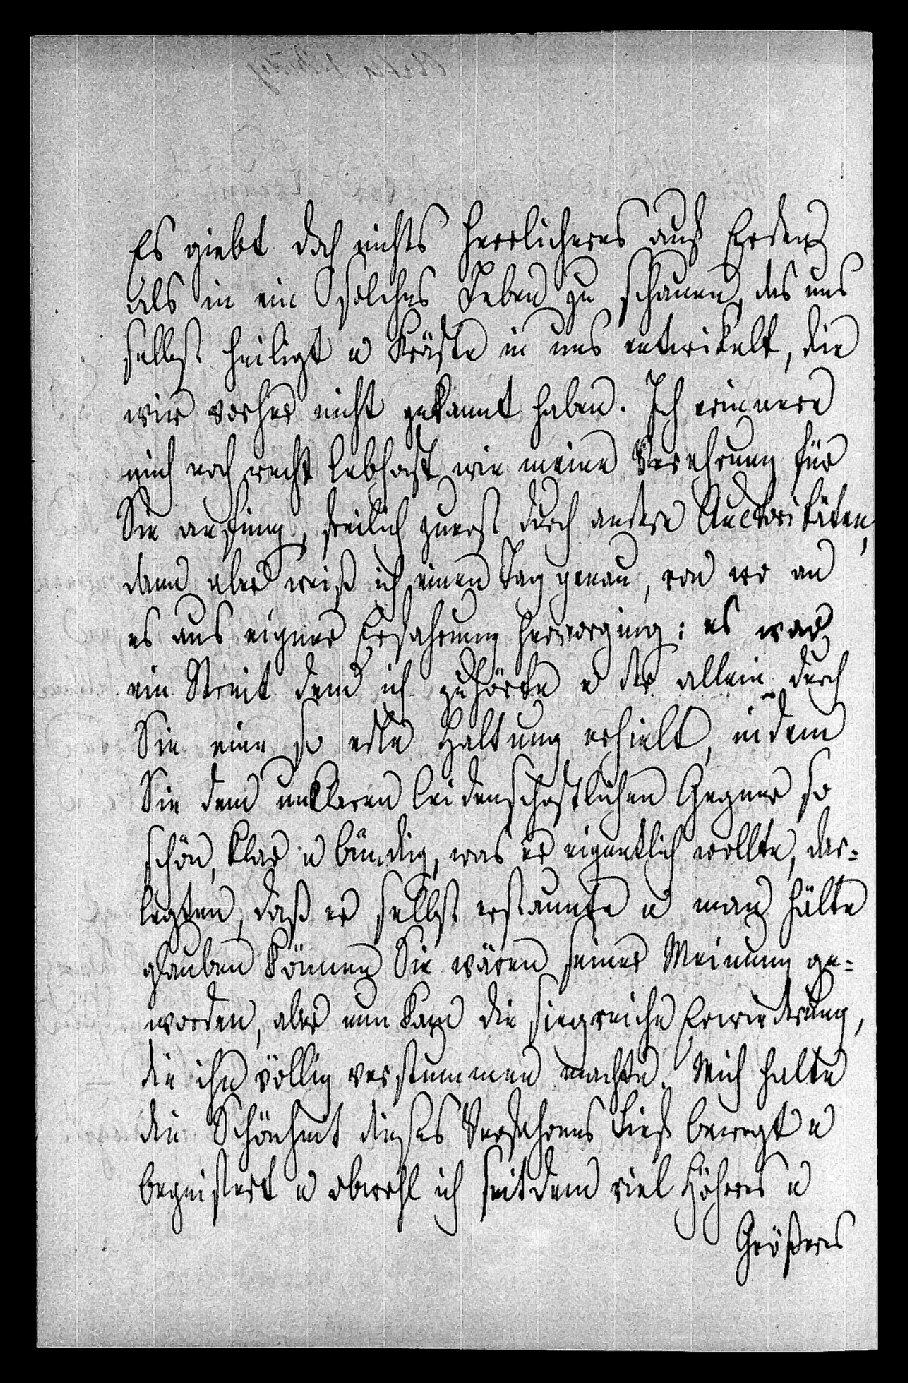 Es giebt doch nichts Herrlicheres auf Erden
als in ein solches Leben zu schauen, das uns
selbst heiligt u Kräfte in uns entwikelt, die
wir vorher nicht gekannt haben. Ich erinnere
mich noch recht lebhaft wie meine Verehrung für
Sie anfing, freilich zuerst durch andere Auctoritäten,
dann aber weiß ich einen Tag genau, von wo an
es aus eigner Erfahrung hervorging: es war
ein Streit dem ich zuhörte u der allein durch
Sie eine so edle Haltung erhielt, indem
Sie dem unklaren leidenschaftlichen Gegner so
schön, klar u bündig, was er eigentlich wollte, dar-
legten, daß er selbst erstaunte u man hätte
glauben können Sie wären seiner Meinung ge-
worden, aber nun kam die siegreiche Erwiederung,
die ihn völlig verstummen machte. Mich hatte
die Schönheit dieses Verfahrens tief bewegt u
begeistert u obwohl ich seitdem viel Höheres u
Größeres